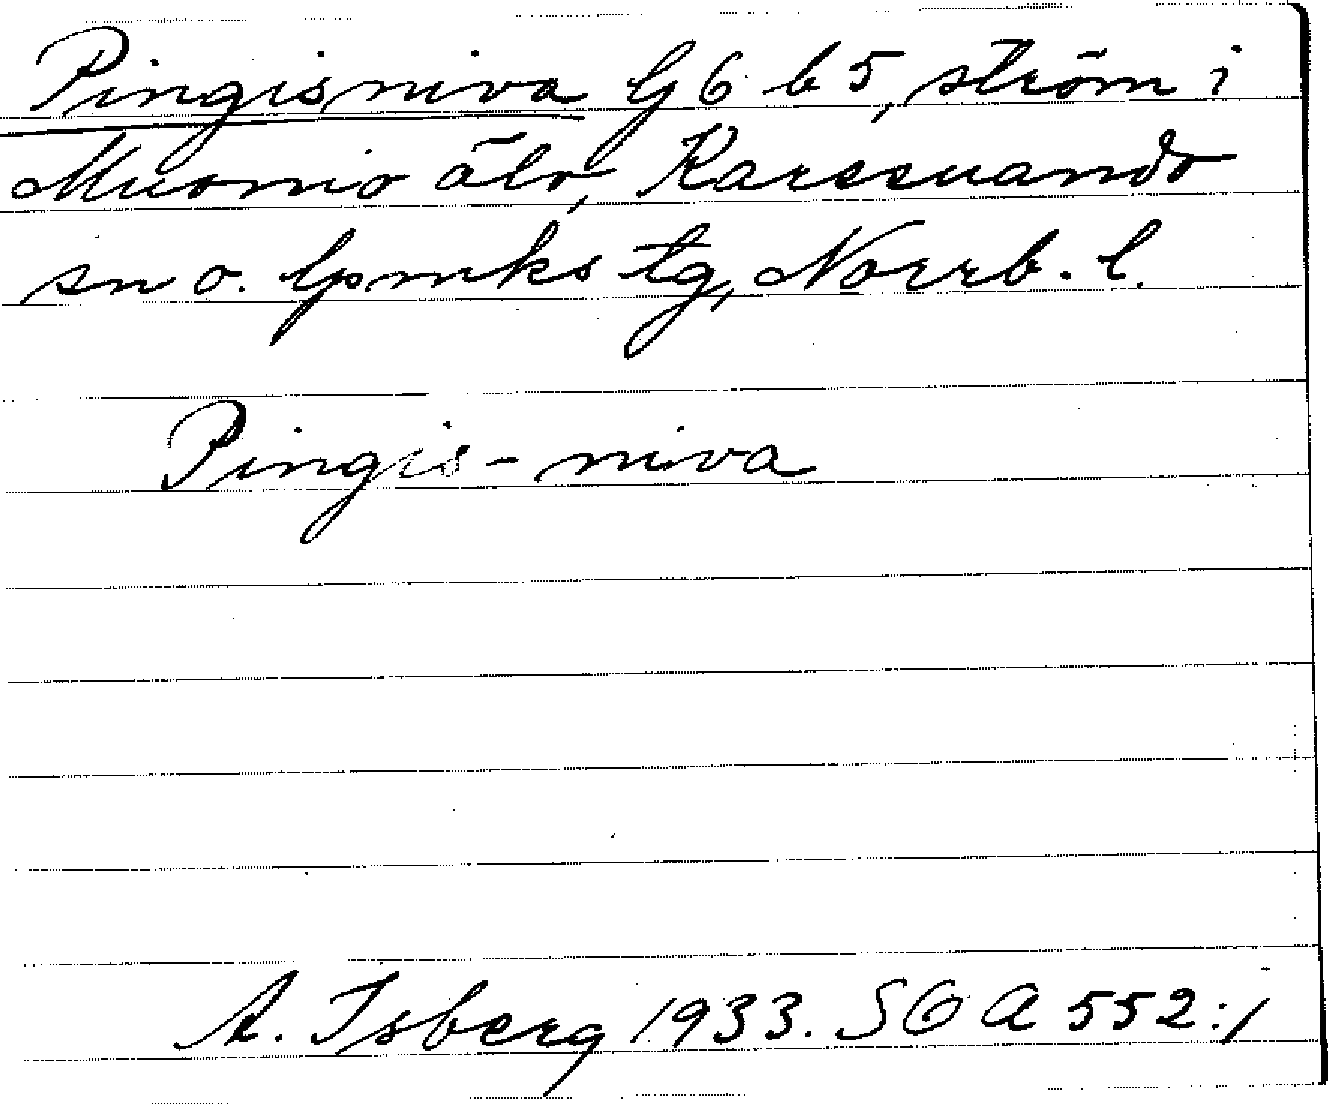 Pingisniva G 6 b 5, ström i
Muonio älv, Karesuando
sn o. lpmks tg, Norrb. l.
Pingis-niva
A. Isberg 1933. SOA 552:1